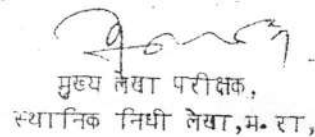 मुख्य लेखा परीक्षक,
स्थानिक निधी लेखा,म. रा,